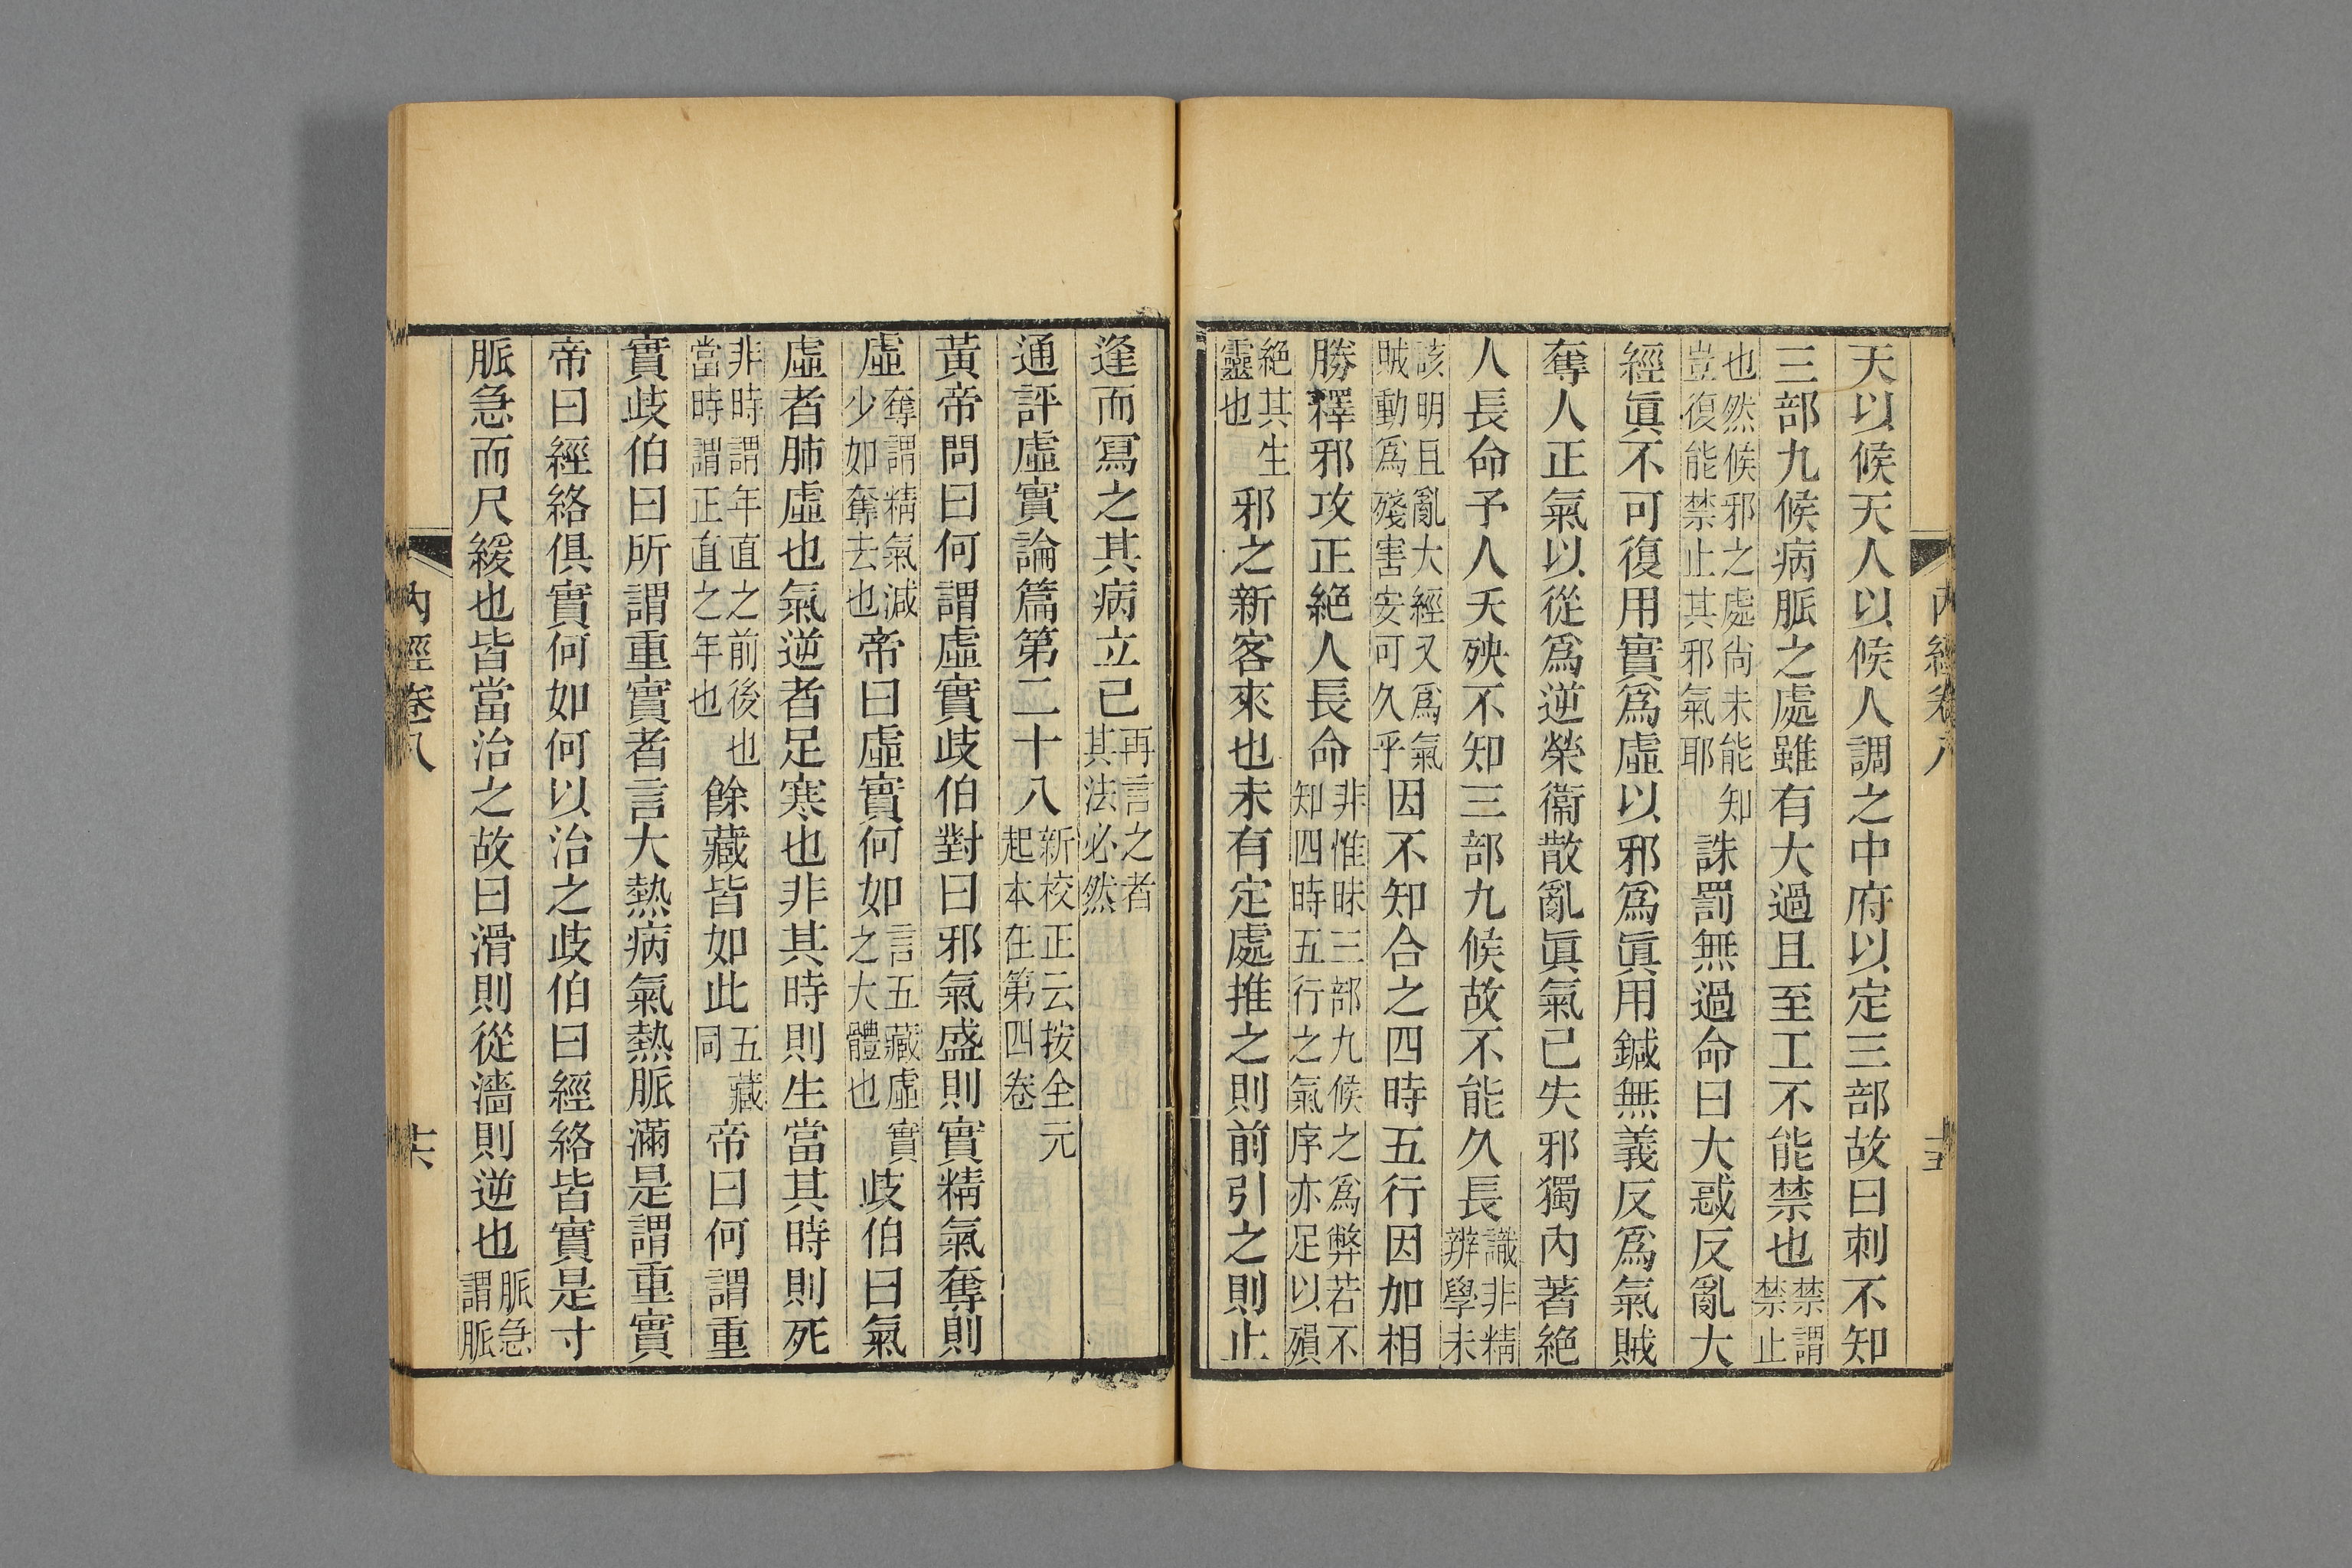 內經卷八
十五
天以候天人以候人調之中府以定三部故曰刺不知
三部九候病脈之處雖有大過且至工不能禁也禁謂禁止
也然候邪之處尚未能知豈復能禁止其邪氣耶誅罰無過命曰大惑反亂大
經眞不可復用實爲虛以邪爲眞用鍼無義反爲氣賊
奪人正氣以從爲逆榮衞散亂眞氣已失邪獨內著絕
人長命予人夭殃不知三部九候故不能久長識非精辨學未
該明且亂大經又爲氣賊動爲殘害安可久乎因不知合之四時五行因加相
勝釋邪攻正絕人長命非惟昧三部九候之爲弊若不知四時五行之氣序亦足以殞
絕其生靈也邪之新客來也未有定處推之則前引之則止
逢而冩之其病立已再言之者其法必然
通評虛實論篇第二十八新校正云按全元起本在第四卷
黃帝問曰何謂虛實歧伯對曰邪氣盛則實精氣奪則
虛奪謂精氣減少如奪去也帝曰虛實何如言五藏虛實之大體也歧伯曰氣
虛者肺虛也氣逆者足寒也非其時則生當其時則死
非時謂年直之前後也當時謂正直之年也餘藏皆如此五藏同帝曰何謂重
實歧伯曰所謂重實者言大熱病氣熱脈滿是謂重實
帝曰經絡俱實何如何以治之歧伯曰經絡皆實是寸
脈急而尺緩也皆當治之故曰滑則從濇則逆也脈急謂脈
內經卷八
十六